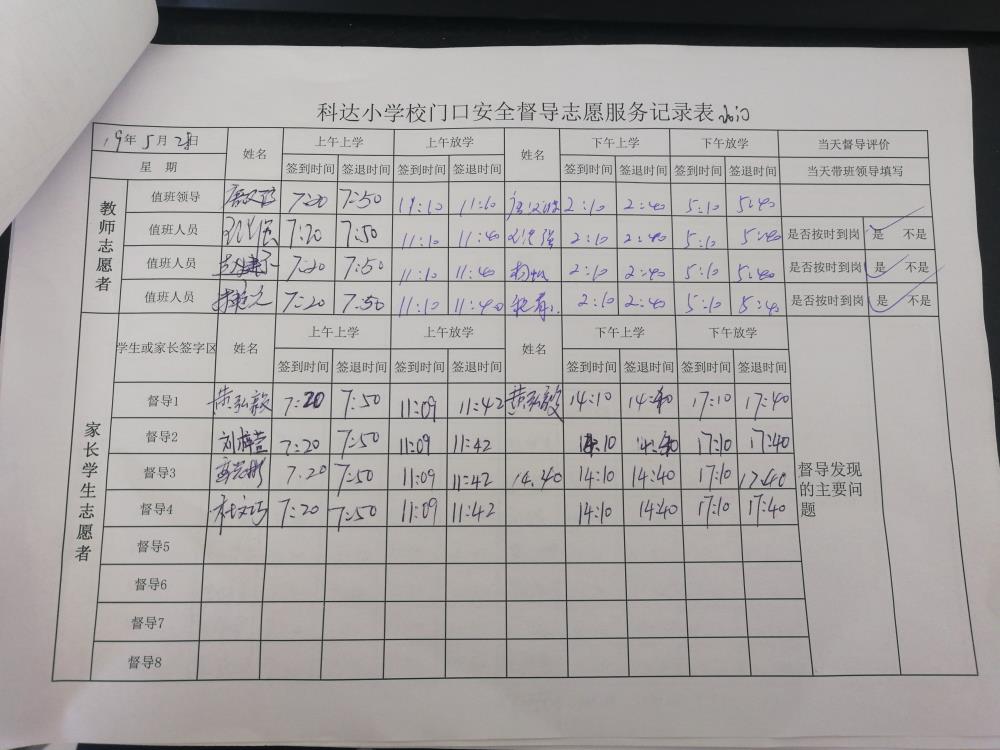 科达小学校门口安全督导志愿服务记录表
19年5月28日 姓名 上午上学 上午放学 姓名 下午上学 下午放学 当天督导评价
星 期 签到时间 签退时间 签到时间 签退时间 签到时间 签退时间 签到时间 签退时间 当天带班领导填写
教师志愿者
值班领导 7:20 7:50 11:10 11:10 2:10 2:40 5:10 5:40
值班人员 7:20 7:50 11:10 11:40 2:10 2:40 5:10 5:40 是否按时到岗 是 不是
值班人员 7:20 7:50 11:10 11:40 2:10 2:40 5:10 5:40 是否按时到岗 是 不是
值班人员 7:20 7:50 11:10 11:40 2:10 2:40 5:10 5:40 是否按时到岗 是 不是
家长学生志愿者
学生或家长签字区 姓名 上午上学 上午放学 姓名 下午上学 下午放学
签到时间 签退时间 签到时间 签退时间 签到时间 签退时间 签到时间 签退时间
督导1 黄弘毅 7:20 7:50 11:09 11:42 黄弘毅 14:10 14:40 17:10 17:40
督导2 7:20 7:50 11:09 11:42 14:10 14:40 17:10 17:40
督导3 7.20 7:50 11:09 11:42 14.40 14:10 14:40 17:10 17:40
督导4 杜文巧 7:20 7:50 11:09 11:42 14:10 14:40 17:10 17:40
督导5
督导6
督导7
督导8
督导发现
的主要问
题